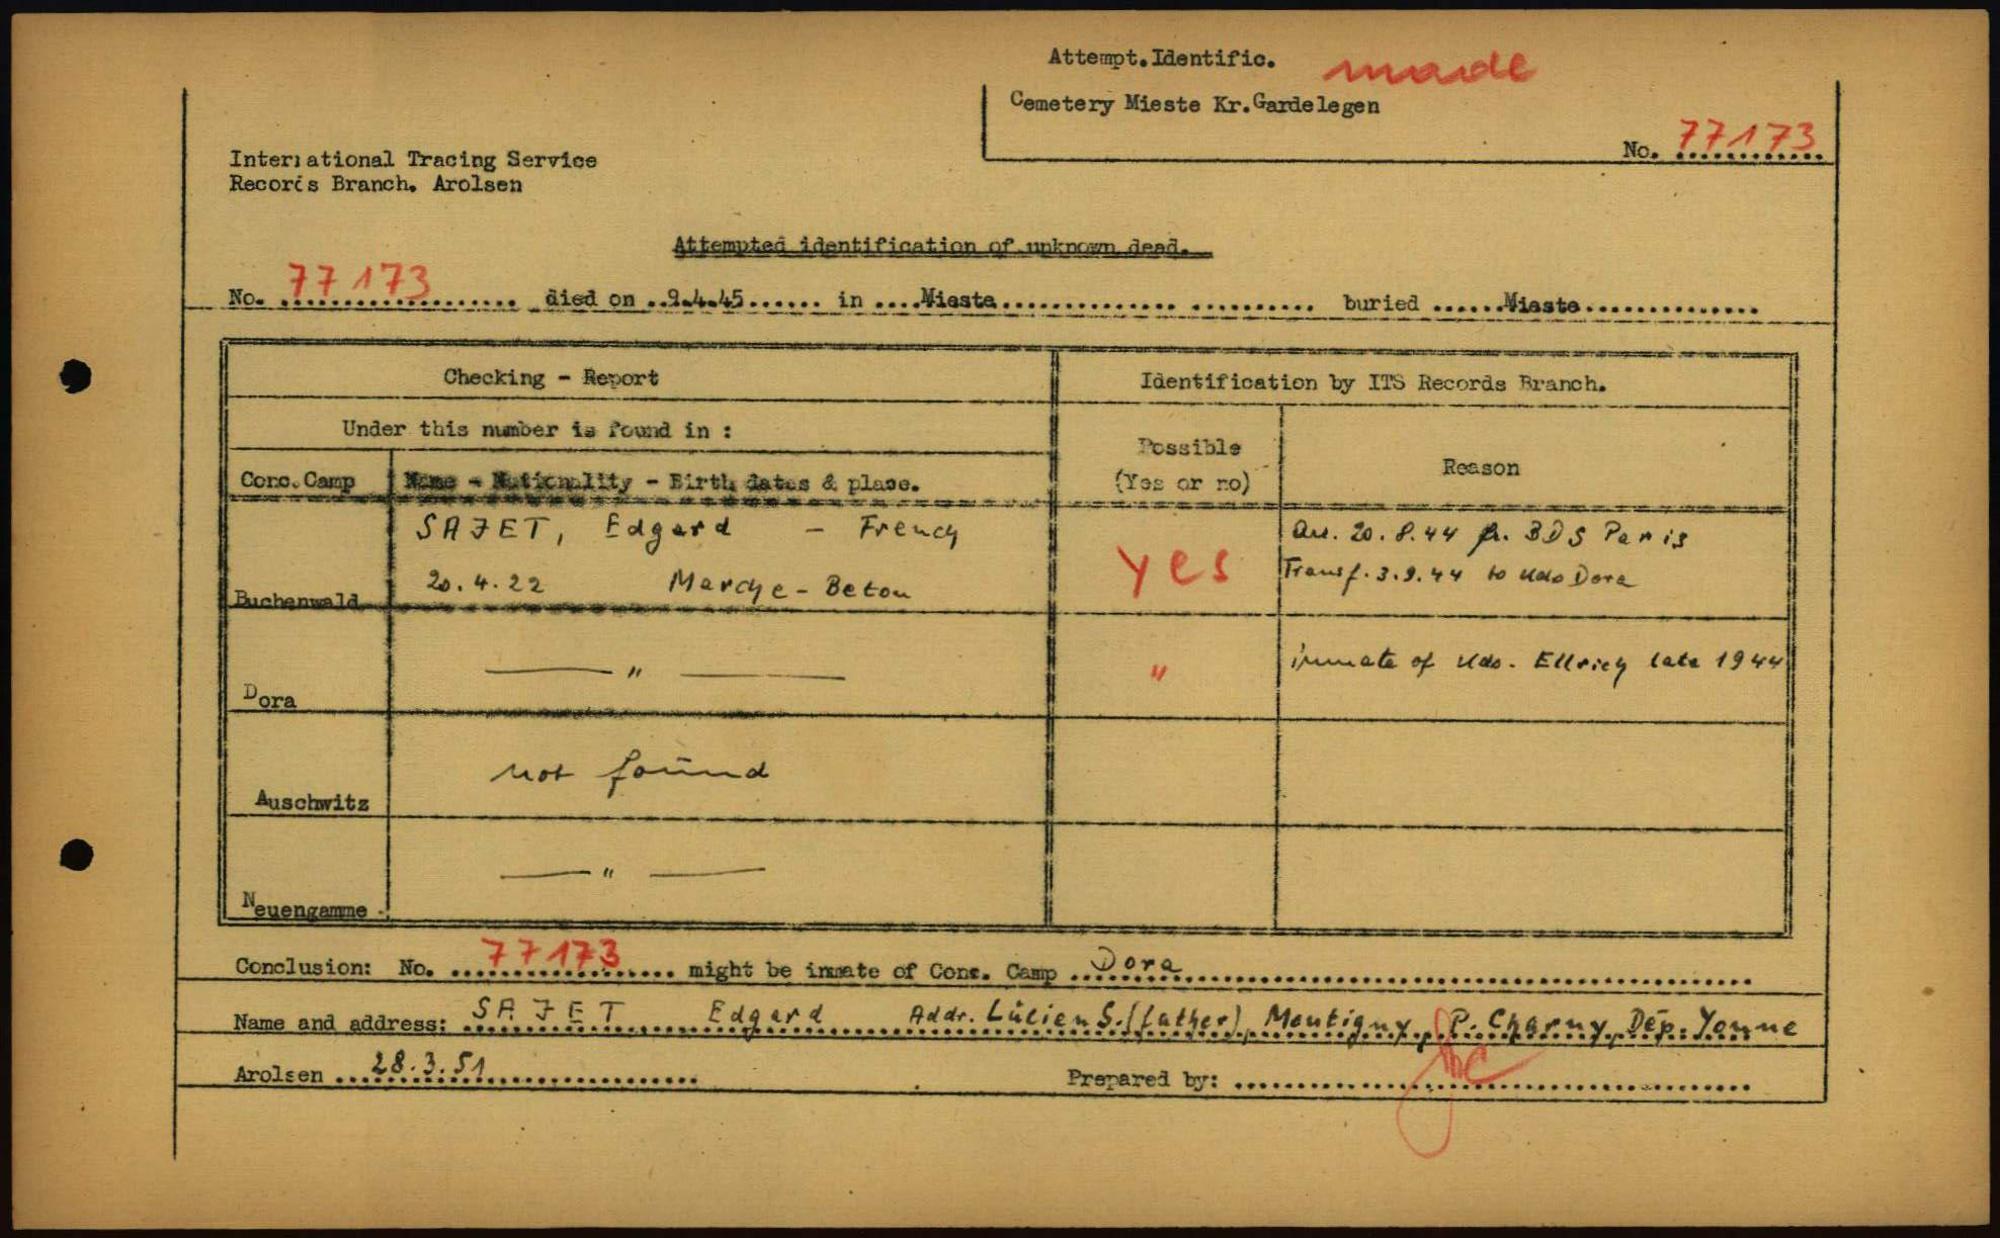 Attempt.Identific. made
Cemetery Mieste Kr.Gardelegen
No. 77173
International Tracing Service
Records Branch. Arolsen
Attempted identification of unknown dead.
No. 77173 died on ..9.4.45...... in ....Mieste............... buried ......Mieste...............
Checking - Report
Identification by ITS Records Branch.
Under this number is found in :
Possible
(Yes or no)
Reason
Conc.Camp
Name - Nationality - Birth dates & place.
SAJET, Edgard - French
20.4.22 Marche-Beton
Buchenwald
yes
Arr. 20.8.44 fr. BDS Paris
Transf. 3.9.44 to Kdo Dora
Dora
— " —
"
inmate of Kdo. Ellrich late 1944
Auschwitz
not found
Neuengamme
— " —
Conclusion: No. 77173 might be inmate of Conc. Camp Dora
Name and address: SAJET Edgard Addr. Lucien S. (father), Montigny, P. Charny, Dép. Yonne
Arolsen 28.3.51
Prepared by: